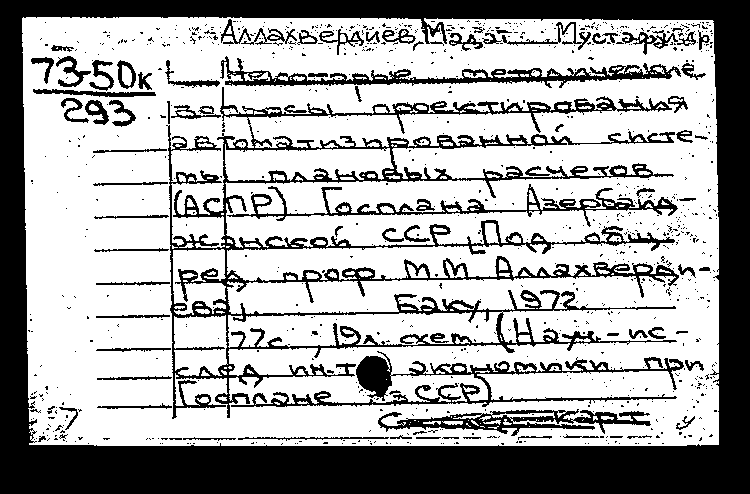 Аллахвердиев, Мадат Мустафа
73-50к
293
Некоторые методические
вопросы проектирования
автоматизированной систе-
мы плановых расчетов
(АСПР) Госплана Азербайд-
жанской ССР [Под общ.
ред. проф. М.М Аллахверди-
ева]. Баку, 1972
77с ; 19л. схем (Науч.-ис-
след ин-т экономики при
Госплане АзССР).
След. карт